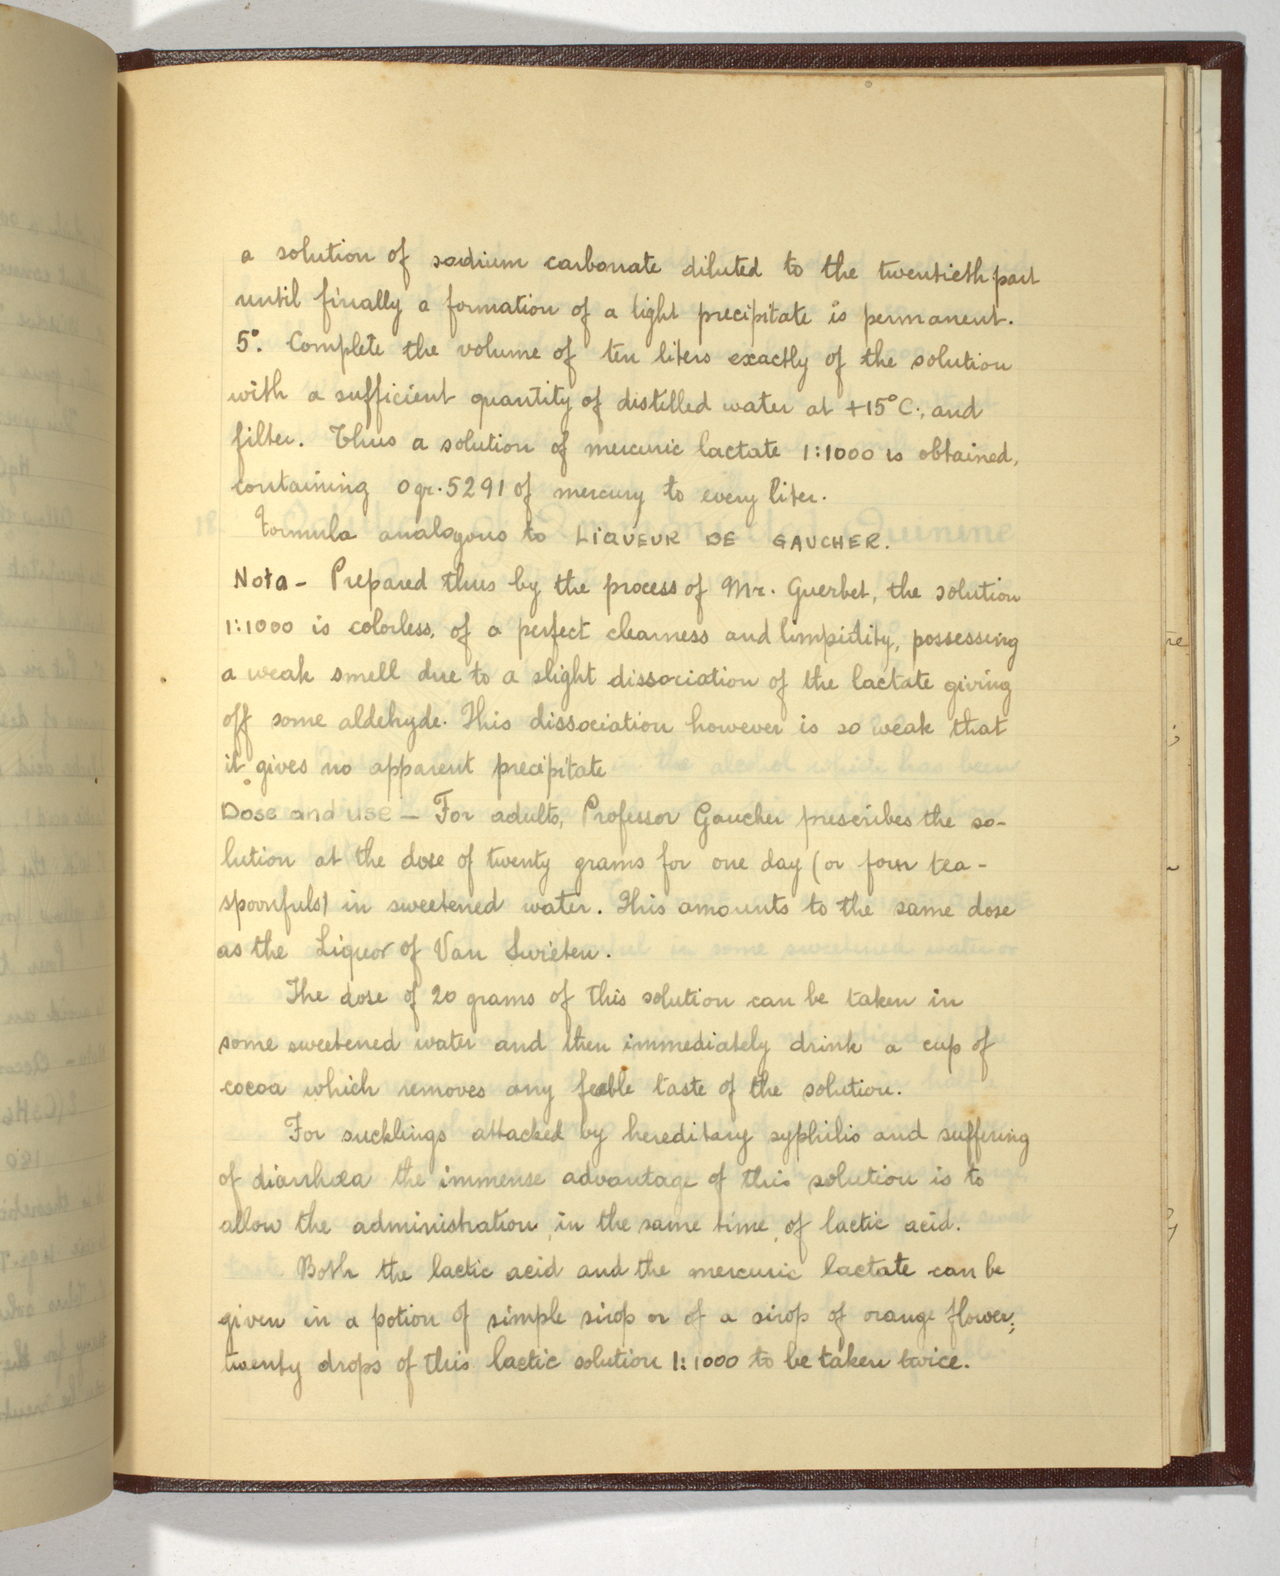 a solution of sodium carbonate diluted to the twentieth part
until finally a formation of a light precipitate is permanent.
5°. Complete the volume of ten liters exactly of the solution
with a sufficient quantity of distilled water at +15°C., and
filter. Thus a solution of mercuric lactate 1:1000 is obtained,
containing 0gr.5291 of mercury to every liter.
Formula analogous to LIQUEUR DE GAUCHER.
Nota - Prepared thus by the process of Mr. Guerbet, the solution
1:1000 is colorless, of a perfect clearness and limpidity, possessing
a weak smell due to a slight dissociation of the lactate giving
off some aldehyde. This dissociation however is so weak that
it gives no apparent precipitate
Dose and use - For adults, Professor Gaucher prescribes the so-
lution at the dose of twenty grams for one day (or four tea-
spoonfuls) in sweetened water. This amounts to the same dose
as the Liquor of Van Swieten.
The dose of 20 grams of this solution can be taken in
some sweetened water and then immediately drink a cup of
cocoa which removes any feeble taste of the solution.
For sucklings attacked by hereditary syphilis and suffering
of diarrhœa the immense advantage of this solution is to
allow the administration, in the same time, of lactic acid.
Both the lactic acid and the mercuric lactate can be
given in a potion of simple sirop or of a sirop of orange flower;
twenty drops of this lactic solution 1:1000 to be taken twice.